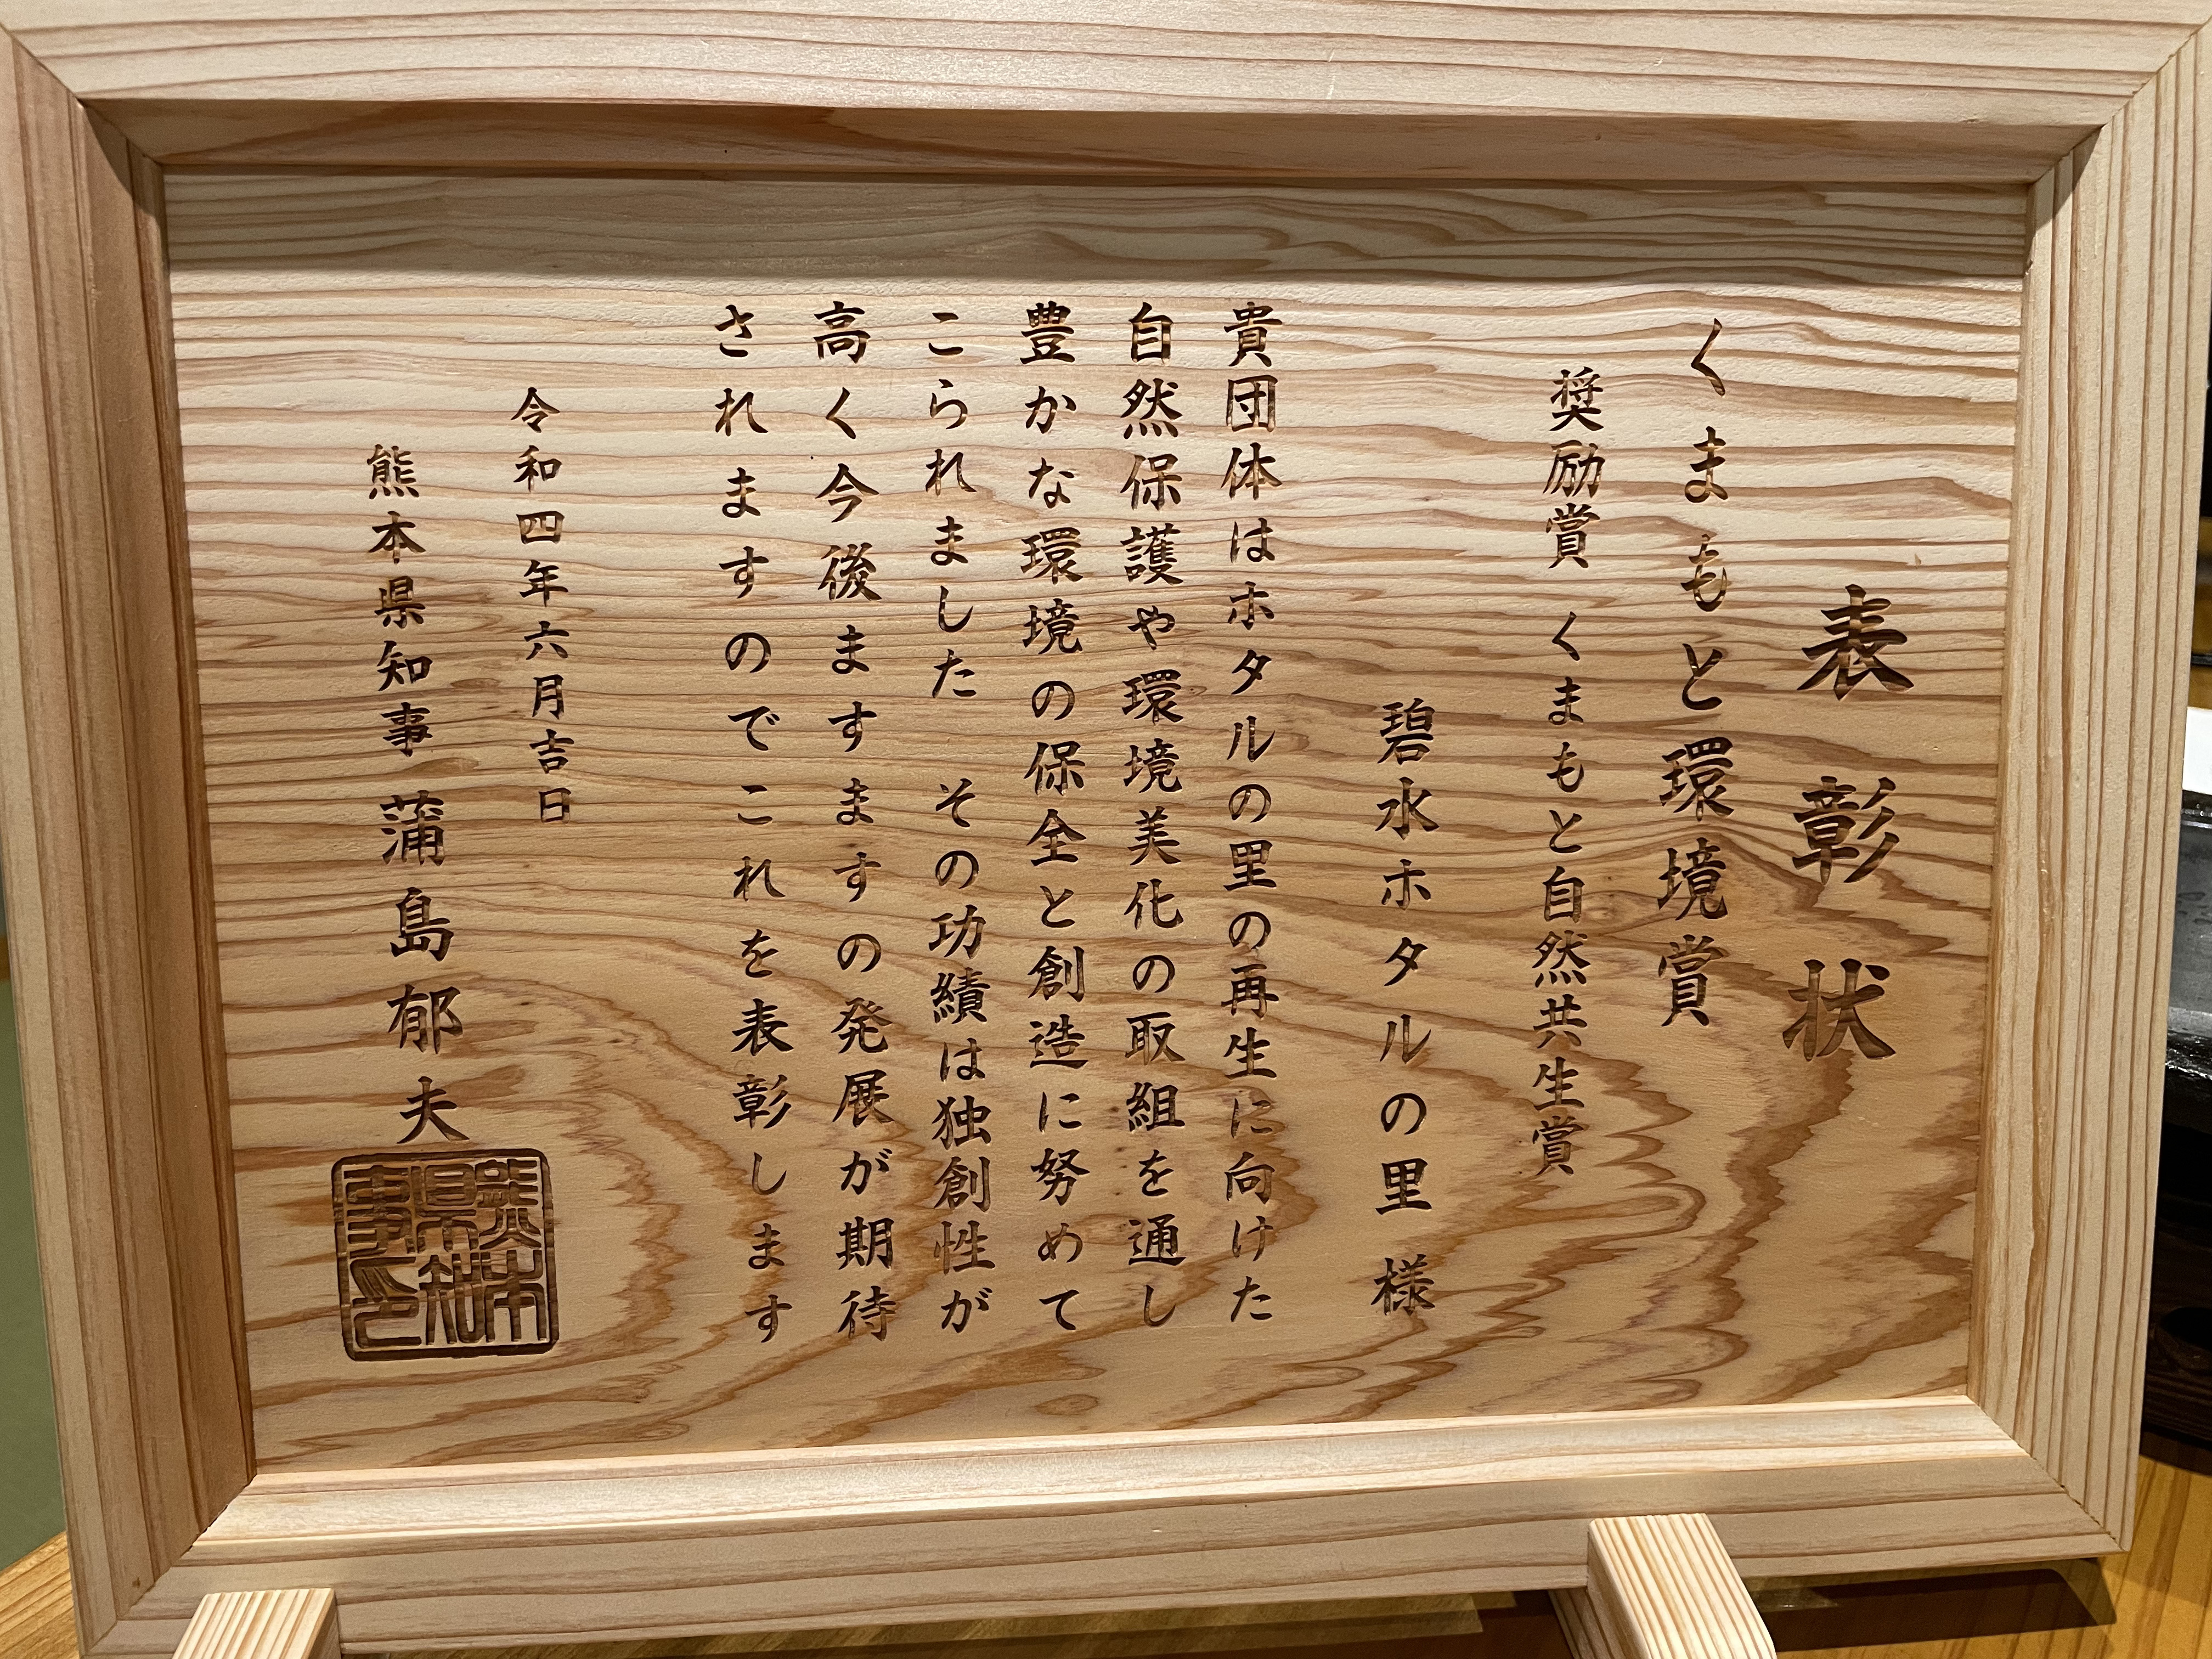 表彰状
くまもと環境賞
奨励賞 くまもと自然共生賞
碧水ホタルの里 様
貴団体はホタルの里の再生に向けた
自然保護や環境美化の取組を通し
豊かな環境の保全と創造に努めて
こられました その功績は独創性が
高く今後ますますの発展が期待
されますのでこれを表彰します
令和四年六月吉日
熊本県知事 蒲島郁夫
熊本県知事之印